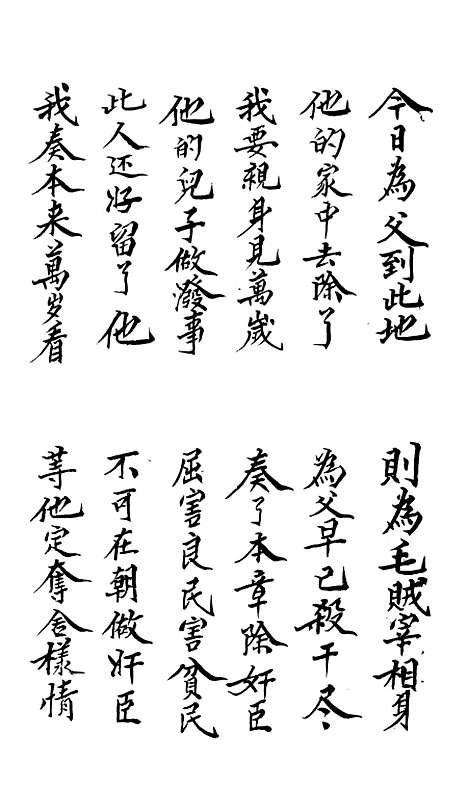 今日為父到此地
則為毛賊宰相身
他的家中去除了
為父早已殺干尽
我要親身見萬歲
奏了本章除奸臣
他的兒子做潑事
屈害良民害貧民
此人还好留了他
不可在朝做奸臣
我奏本来萬岁看
等他定奪舍樣情